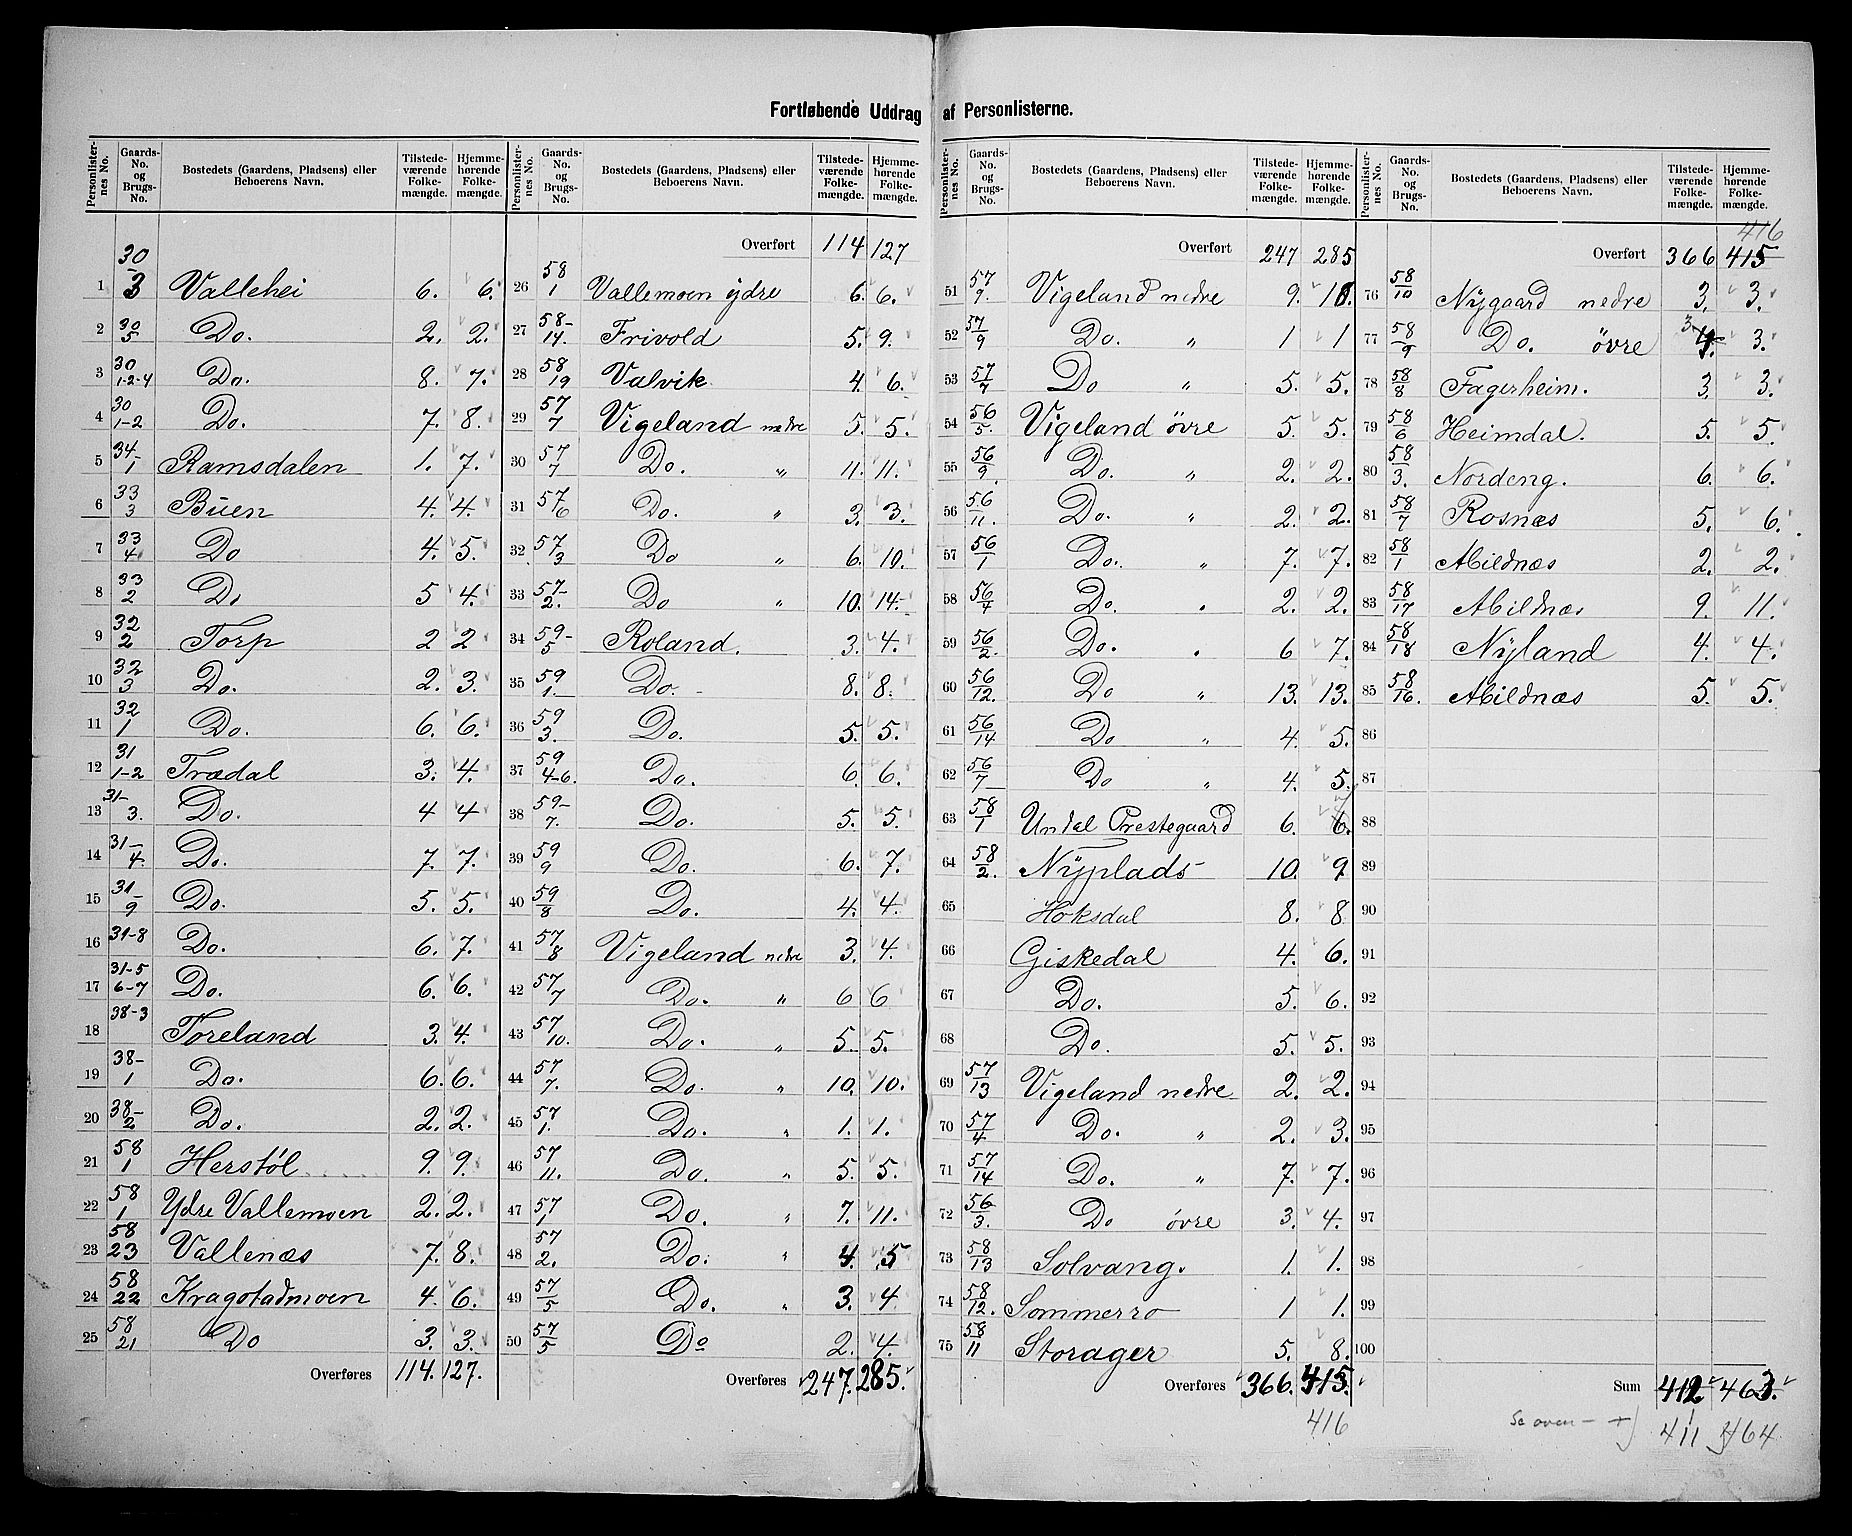 Fortløbende Uddrag af Personlisterne.
Personlister-nes No. | Gaards-No. og Brugs-No. | Bostedets (Gaardens, Pladsens) eller Beboerens Navn. | Tilstede-værende Folke-mængde. | Hjemme-hørende Folke-mængde.
1 30/3 Vallehei 6. 6.
2 30/5 Do. 2. 2.
3 30/1-2-4 Do. 8. 7.
4 30/1-2 Do. 7. 8.
5 34-/1 Ramsdalen 1. 7.
6 33/3 Buen 4. 4.
7 33/4 Do 4. 5.
8 33/2 Do 5 4.
9 32/2 Torp 2 2
10 32/3 Do. 2. 3.
11 32/1 Do. 6. 6.
12 31/1-2 Trædal 3. 4.
13 31-/3. Do. 4 4
14 31-/4. Do. 7. 7.
15 31-/9 Do. 5. 5.
16 31-8 Do. 6. 7.
17 31-5/6-7 Do. 6. 6.
18 38-3 Foreland 3. 4.
19 38-/1 Do. 6. 6.
20 38-/2 Do. 2. 2.
21 58/1 Herstøl 9. 9.
22 58/1 Ydre Vallemoen 2. 2.
23 58/23 Vallenæs 7. 8.
24 58/22 Kragstadmoen 4. 6.
25 58/21 Do 3. 3.
Overføres 114. 127.
Personlister-nes No. | Gaards-No. og Brugs-No. | Bostedets (Gaardens, Pladsens) eller Beboerens Navn. | Tilstede-værende Folke-mængde. | Hjemme-hørende Folke-mængde.
Overført 114 127
26 58/1 Vallemoen ydre 6. 6.
27 58-/14. Frivold 5. 9.
28 58/19 Valvik 4. 6.
29 57/7 Vigeland nedre 5. 5.
30 57/7 Do. " 11. 11.
31 57/6 Do. " 3. 3.
32 57/3 Do " 6. 10.
33 57-/2. Do " 10. 14.
34 59-/5 Roland. 3. 4.
35 59/1. Do. - 8. 8.
36 59/3. Do. 5. 5.
37 59/4-6. Do. 6. 6.
38 59-/7. Do. 5. 5.
39 59/9 Do. 6. 7.
40 59/8 Do. 4. 4.
41 57/8 Vigeland nedre 3. 4.
42 57/7 Do. " 6 6
43 57/10. Do. " 5. 5.
44 57/7. Do. " 10. 10.
45 57/1. Do. " 1. 1.
46 57/11. Do. " 5. 5.
47 57/1 Do. " 7. 11.
48 57/2. Do. " 4. 5
49 57/5 Do. " 3. 4
50 57/5 Do 2. 4.
Overføres 247. 285.
Personlister-nes No. | Gaards-No. og Brugs-No. | Bostedets (Gaardens, Pladsens) eller Beboerens Navn. | Tilstede-værende Folke-mængde. | Hjemme-hørende Folke-mængde.
Overført 247 285
51 57/9. Vigeland nedre 9. 10.
52 57/9 Do. " 1 1
53 57/7 Do " 5. 5.
54 56/5. Vigeland øvre 5. 5.
55 56/9. Do. " 2. 2.
56 56/11. Do. " 2. 2.
57 56/1 Do. " 7. 7.
58 56/4 Do. " 2. 2.
59 56/2. Do. " 6 7.
60 56/12. Do " 13. 13.
61 56/14 Do " 4. 5.
62 56/7 Do " 4. 5.
63 58/1 Undal Prestegaard 6. 6.
64 58/2. Nyplads 10. 9
65 Hoksdal 8. 8
66 Giskedal 4. 6.
67 Do. 5. 6.
68 Do. 5. 5.
69 57/13 Vigeland nedre 2. 2.
70 57/4 Do. " 2. 3.
71 57/14 Do. " 7. 7.
72 56/3. Do øvre 3. 4.
73 58/13 Solvang. 1. 1.
74 58/12. Sommerro 1 1.
75 58/11 Storager 5. 8.
Overføres 366. 415.
416
Personlister-nes No. | Gaards-No. og Brugs-No. | Bostedets (Gaardens, Pladsens) eller Beboerens Navn. | Tilstede-værende Folke-mængde. | Hjemme-hørende Folke-mængde.
416
Overført 366 415
76 58/10 Nygaard nedre 3. 3.
77 58/9 Do. øvre 3. 4. 3.
78 58/8 Fagerheim. 3. 3.
79 58/6 Heimdal. 5. 5.
80 58/3. Nordeng. 6. 6.
81 58/7 Rosnæs 5. 6.
82 58/1 Abildnæs 2. 2.
83 58/17 Abildnæs 9. 11.
84 58/18 Nyland 4. 4.
85 58/16. Abildnæs 5. 5.
86
87
88
89
90
91
92
93
94
95
96
97
98
99
100
Sum 412 463.
Se oven 411 464